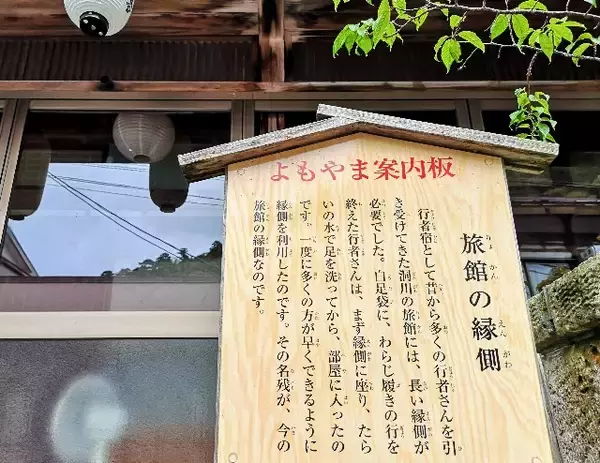 よもやま案内板
旅館の縁側
行者宿として昔から多くの行者さんを引
き受けてきた洞川の旅館には、長い縁側が
必要でした。白足袋に、わらじ履きの行を
終えた行者さんは、まず縁側に座り、たら
いの水で足を洗ってから、部屋に入ったの
です。一度に多くの方が早くできるように
縁側を利用したのです。その名残が、今の
旅館の縁側なのです。